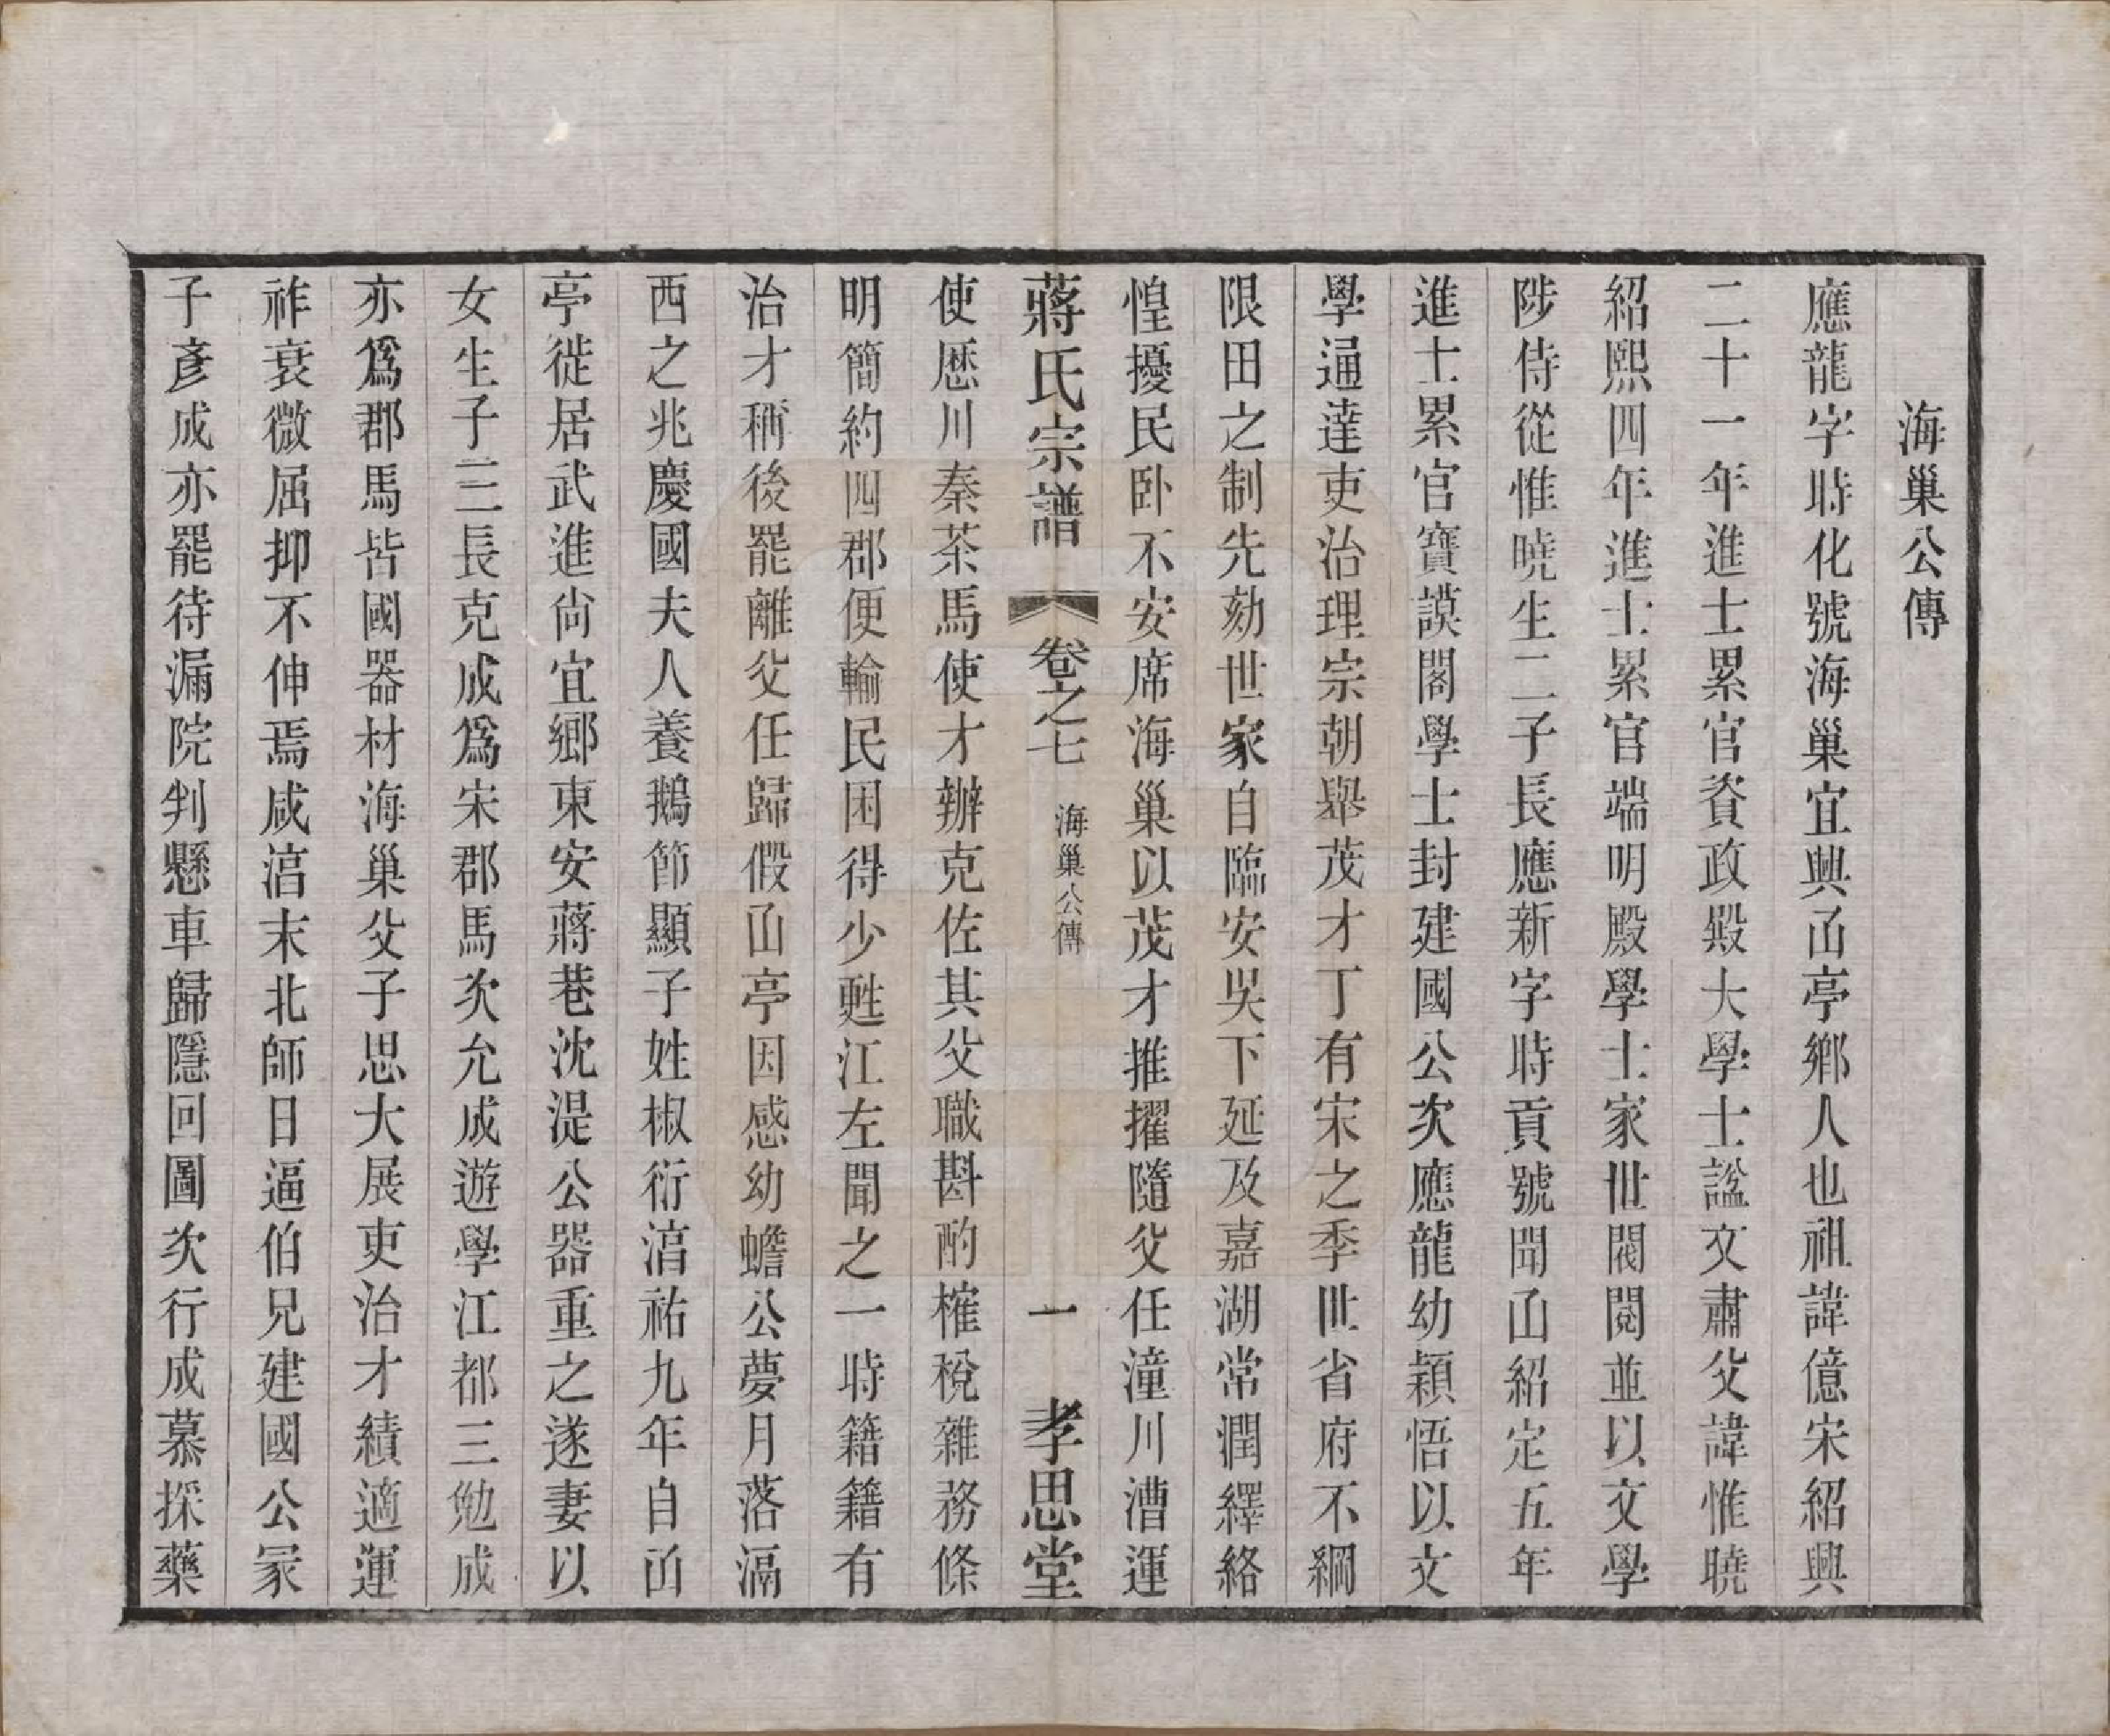 海巢公傳
應龍字時化號海巢宜興凾亭鄉人也祖諱億宋紹興
二十一年進士累官資政殿大學士諡文肅父諱惟曉
紹熙四年進士累官端明殿學士家世閥閱並以文學
陟侍從惟曉生二子長應新字時貢號聞山紹定五年
進士累官寶謨閣學士封建國公次應龍幼穎悟以文
學通達吏治理宗朝舉茂才丁有宋之季世省府不綱
限田之制先劾世家自臨安吳下延及嘉湖常潤繹絡
惶擾民卧不安席海巢以茂才推擢隨父任潼川漕運
蔣氏宗譜 卷之七 海巢公傳 一 孝思堂
使歷川秦茶馬使才辦克佐其父職斟酌榷稅雜務條
明簡約四郡便輸民困得少甦江左聞之一時籍籍有
治才稱後罷離父任歸假凾亭因感幼蟾公夢月落滆
西之兆慶國夫人養鵝節顯子姓椒衍湻祐九年自凾
亭徙居武進尙宜鄉東安蔣巷沈湜公器重之遂妻以
女生子三長克成爲宋郡馬次允成遊學江都三勉成
亦爲郡馬皆國器材海巢父子思大展吏治才績適運
祚衰微屈抑不伸焉咸湻末北師日逼伯兄建國公冢
子彥成亦罷待漏院判懸車歸隱回圖次行成慕採藥